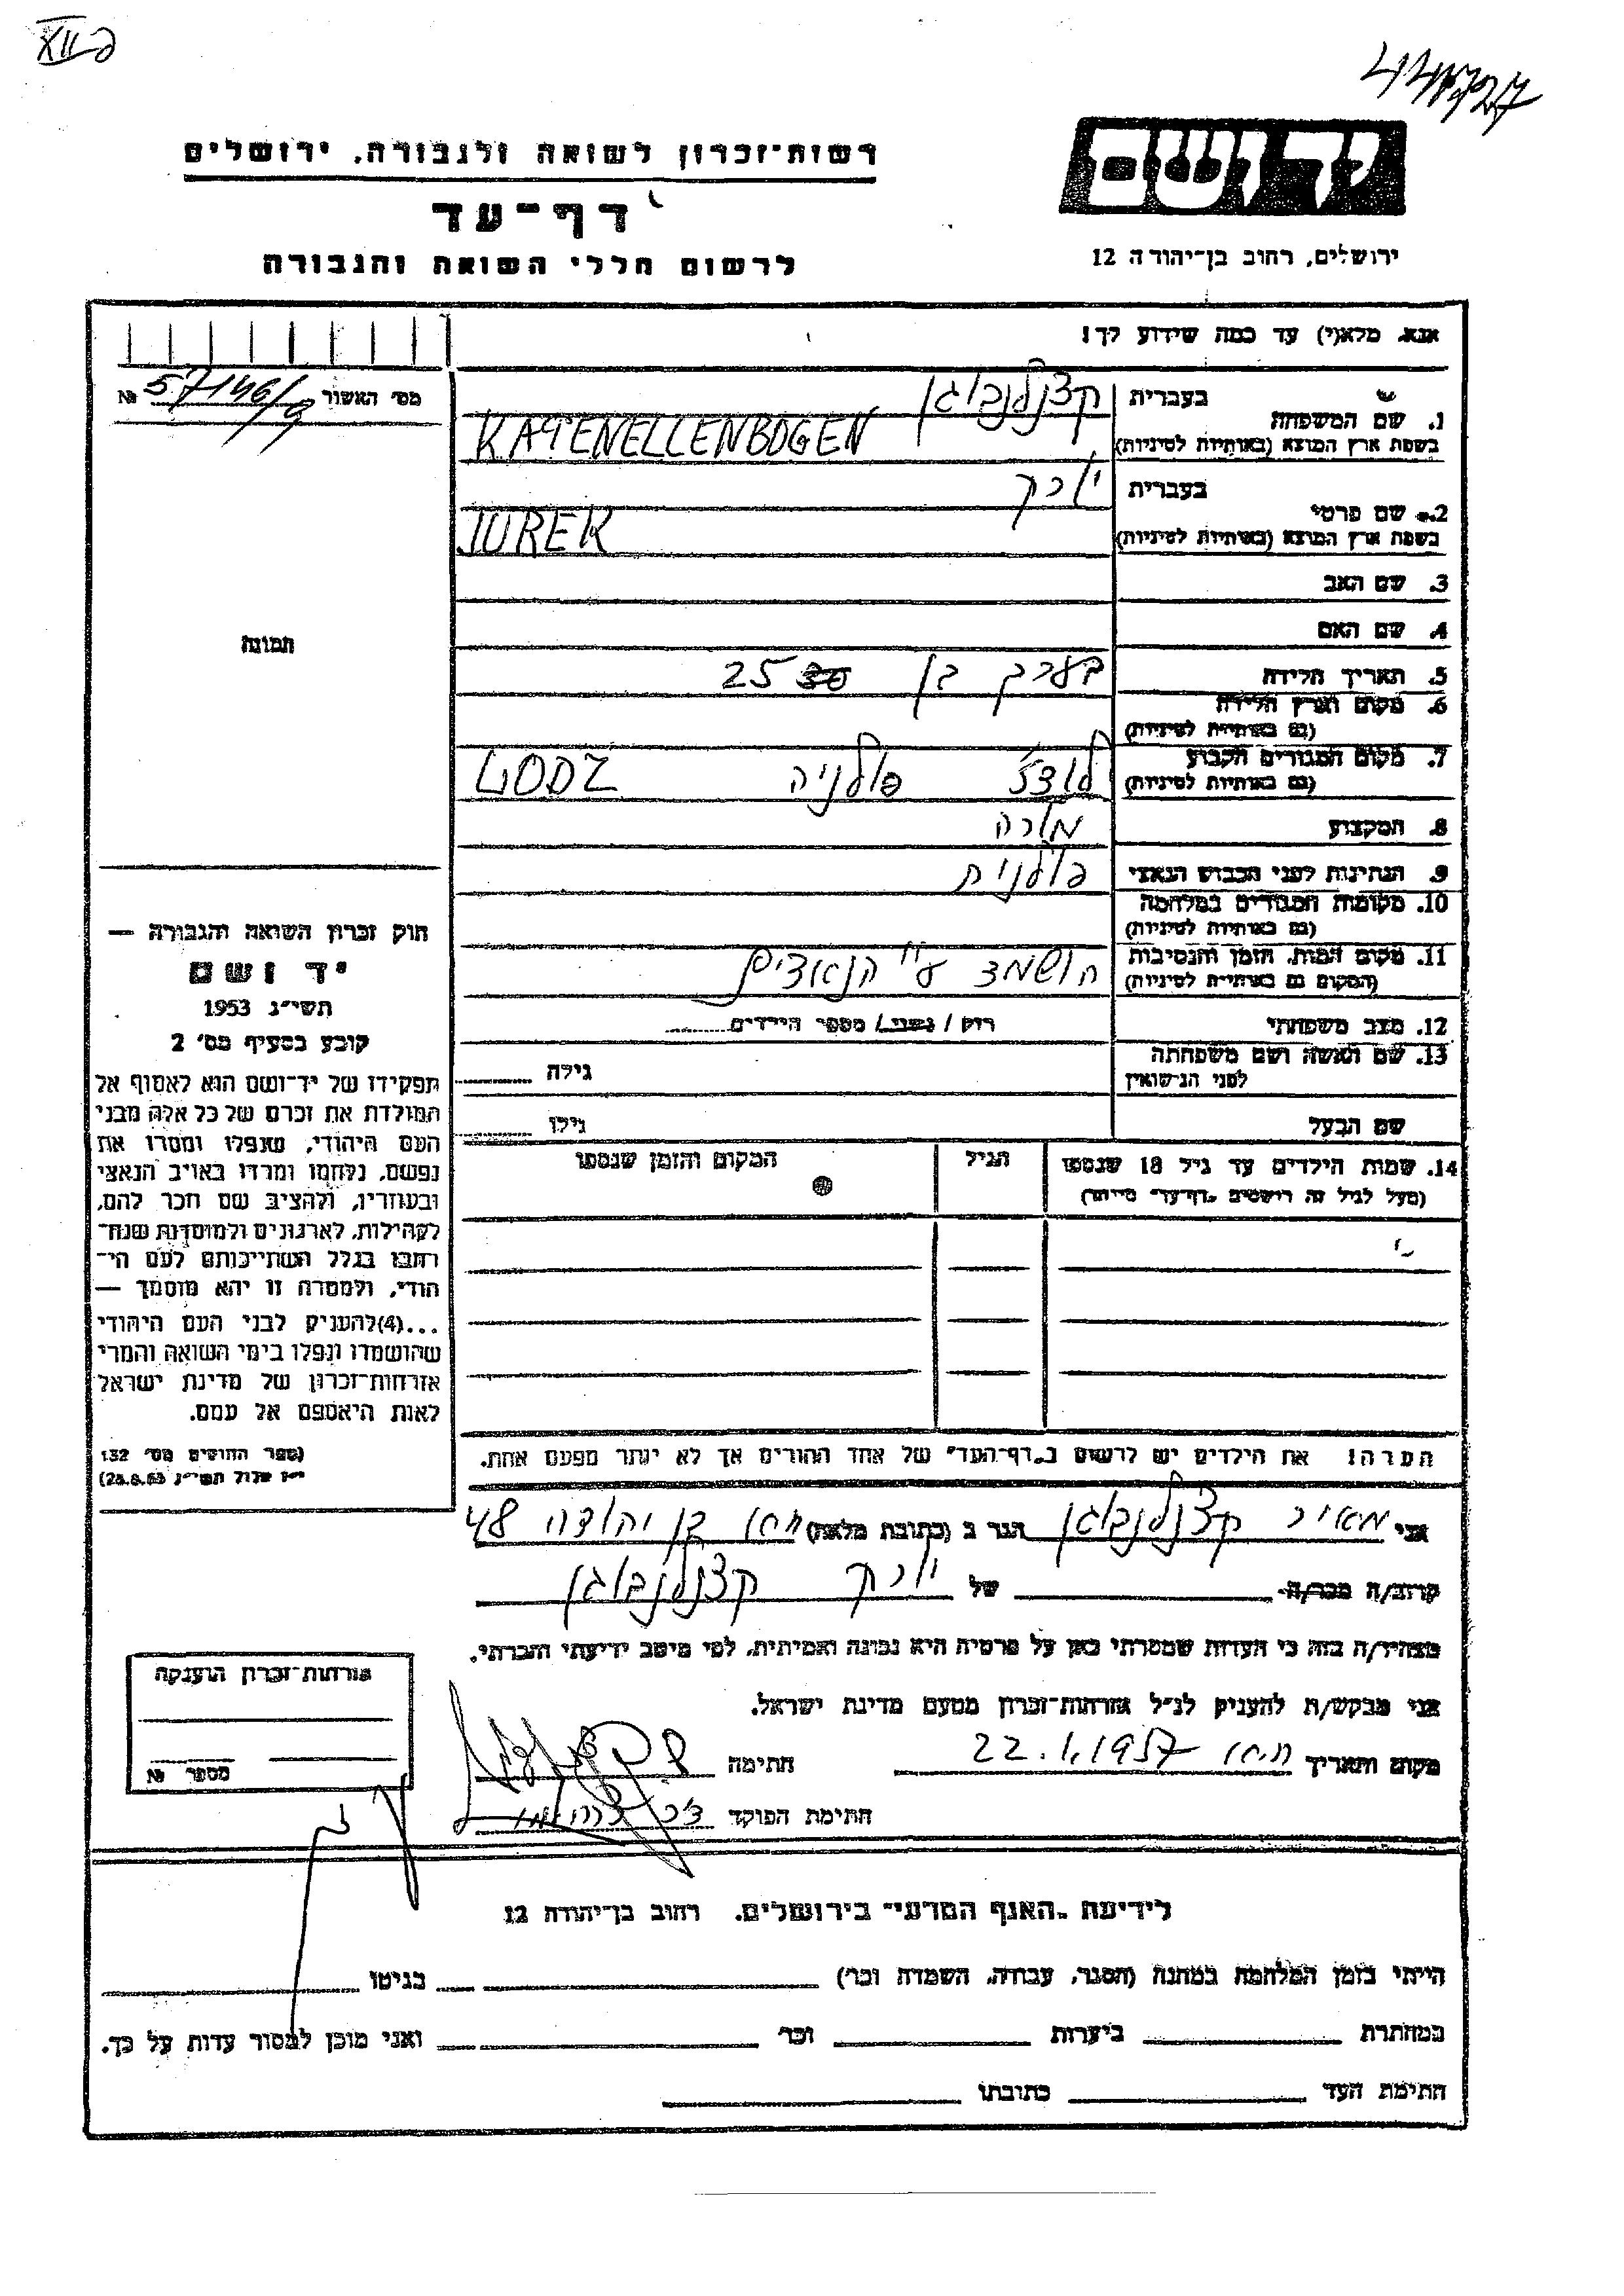 רשות-זכרון לשואה ולגבורה, ירושלים
יד ושם
דף-עד
ירושלים, רחוב בן-יהודה 12
לרשום חללי השואה והגבורה
אנא, מלא(י) עד כמה שידוע לך!
מס׳ האשור 57146/9 №
בעברית קצנלנבוגן
1. שם המשפחה
בשפת ארץ המוצא (באותיות לטיניות) KATENELLENBOGEN
בעברית יורק
2. שם פרטי
בשפת ארץ המוצא (באותיות לטיניות) JUREK
3. שם האב
4. שם האם
תמונה
5. תאריך הלידה בערך בן 25
6. מקום וארץ הלידה
(גם באותיות לטיניות)
7. מקום המגורים הקבוע לודז׳ פולניה LODZ
(גם באותיות לטיניות)
8. המקצוע מורה
9. הנתינות לפני הכבוש הנאצי פולנית
10. מקומות המגורים במלחמה
(גם באותיות לטיניות)
11. מקום המות, הזמן והנסיבות
(המקום גם באותיות לטיניות) הושמד ע״י הנאצים
12. מצב משפחתי רוק / נשוי / מספר הילדים
13. שם האשה ושם משפחתה
לפני הנישואין גילה
שם הבעל גילו
14. שמות הילדים עד גיל 18 שנספו הגיל המקום והזמן שנספו
(מעל לגיל זה רושמים „דף-עד״ מיוחד)
חוק זכרון השואה והגבורה —
יד ושם
תשי״ג 1953
קובע בסעיף מס׳ 2
תפקידו של יד-ושם הוא לאסוף אל
המולדת את זכרם של כל אלה מבני
העם היהודי, שנפלו ומסרו את
נפשם, נלחמו ומרדו באויב הנאצי
ובעוזריו, ולהציב שם וזכר להם,
לקהילות, לארגונים ולמוסדות שנח-
רבו בגלל השתייכותם לעם הי-
הודי, ולמטרה זו יהא מוסמך —
...(4)להעניק לבני העם היהודי
שהושמדו ונפלו בימי השואה והמרי
אזרחות-זכרון של מדינת ישראל
לאות היאספם אל עמם.
(ספר החוקים מס׳ 132
י״ז אלול תשי״ג 28.8.53)
הערה! את הילדים יש לרשום ב„דף-העד״ של אחד ההורים אך לא יותר מפעם אחת.
אני מאיר קצנלנבוגן הגר ב (כתובת מלאה) בן יהודה 48
קרוב/ה מכר/ה של יורק קצנלנבוגן
מצהיר/ה בזה כי העדות שמסרתי כאן על פרטיה היא נכונה ואמיתית, לפי מיטב ידיעתי והכרתי.
אני מבקש/ת להעניק לנ״ל אזרחות-זכרון מטעם מדינת ישראל.
מקום ותאריך 22.1.1957 חתימה
חתימת הפוקד
אזרחות-זכרון הוענקה
מספר №
לידיעת „האגף המדעי״ בירושלים, רחוב בן-יהודה 12
הייתי בזמן המלחמה במחנה (הסגר, עבודה, השמדה וכו׳) בגיטו
במחתרת ביערות וכו׳ ואני מוכן למסור עדות על כך.
חתימת העד כתובתו